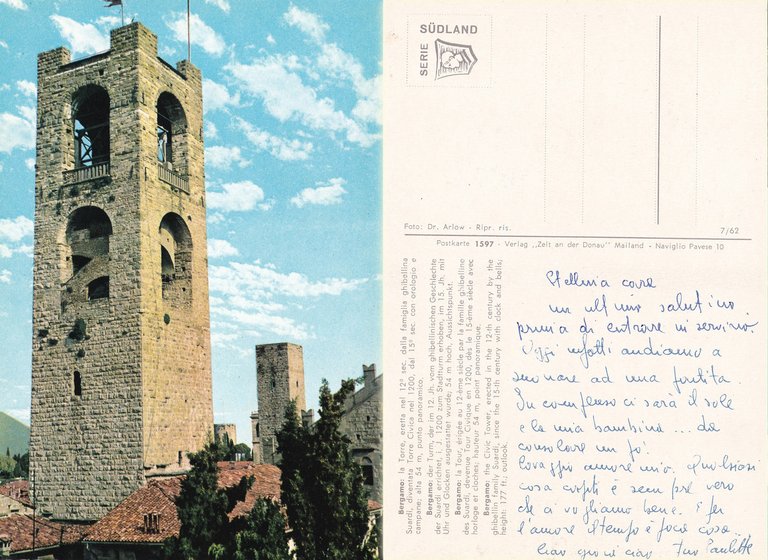 SERIE SÜDLAND
Foto: Dr. Arlow - Ripr. ris.
7/62
Postkarte 1597 - Verlag „Zeit an der Donau" Mailand - Naviglio Pavese 10
Bergamo: la Torre, eretta nel 12° sec. dalla famiglia ghibellina
Suardi, diventata Torre Civica nel 1200, dal 15° sec con orologio e
campane; alta 54 m, punto panoramico.
Bergamo: der Turm, der im 12. Jh. vom ghibellinischen Geschlechte
der Suardi errichtet, i. J. 1200 zum Stadtturm erhoben, im 15. Jh. mit
Uhr und Glocken ausgestattet wurde; 54 m hoch, Aussichtspunkt.
Bergamo: la Tour, érigée au 12-ème siècle par la famille ghibelline
des Suardi, devenue Tour Civique en 1200, dès le 15-ème siècle avec
horloge et cloches; hauteur 54 m, point panoramique.
Bergamo: the Civic Tower, erected in the 12-th century by the
ghibellin family Suardi, since the 15-th century with clock and bells;
height: 177 ft.; outlook.
Stellina cara
un ultimo salutino
prima di entrare in servizio.
Oggi infatti andiamo a
suonare ad una partita.
In compenso ci sarà il sole
e la mia bambina ... da
consolare un po'.
Coraggio amore mio. Qualsiasi
cosa capiti è sempre vero
che ci vogliamo bene. E per
l'amore il tempo è poca cosa.
Ciao gioia ciao. Tuo